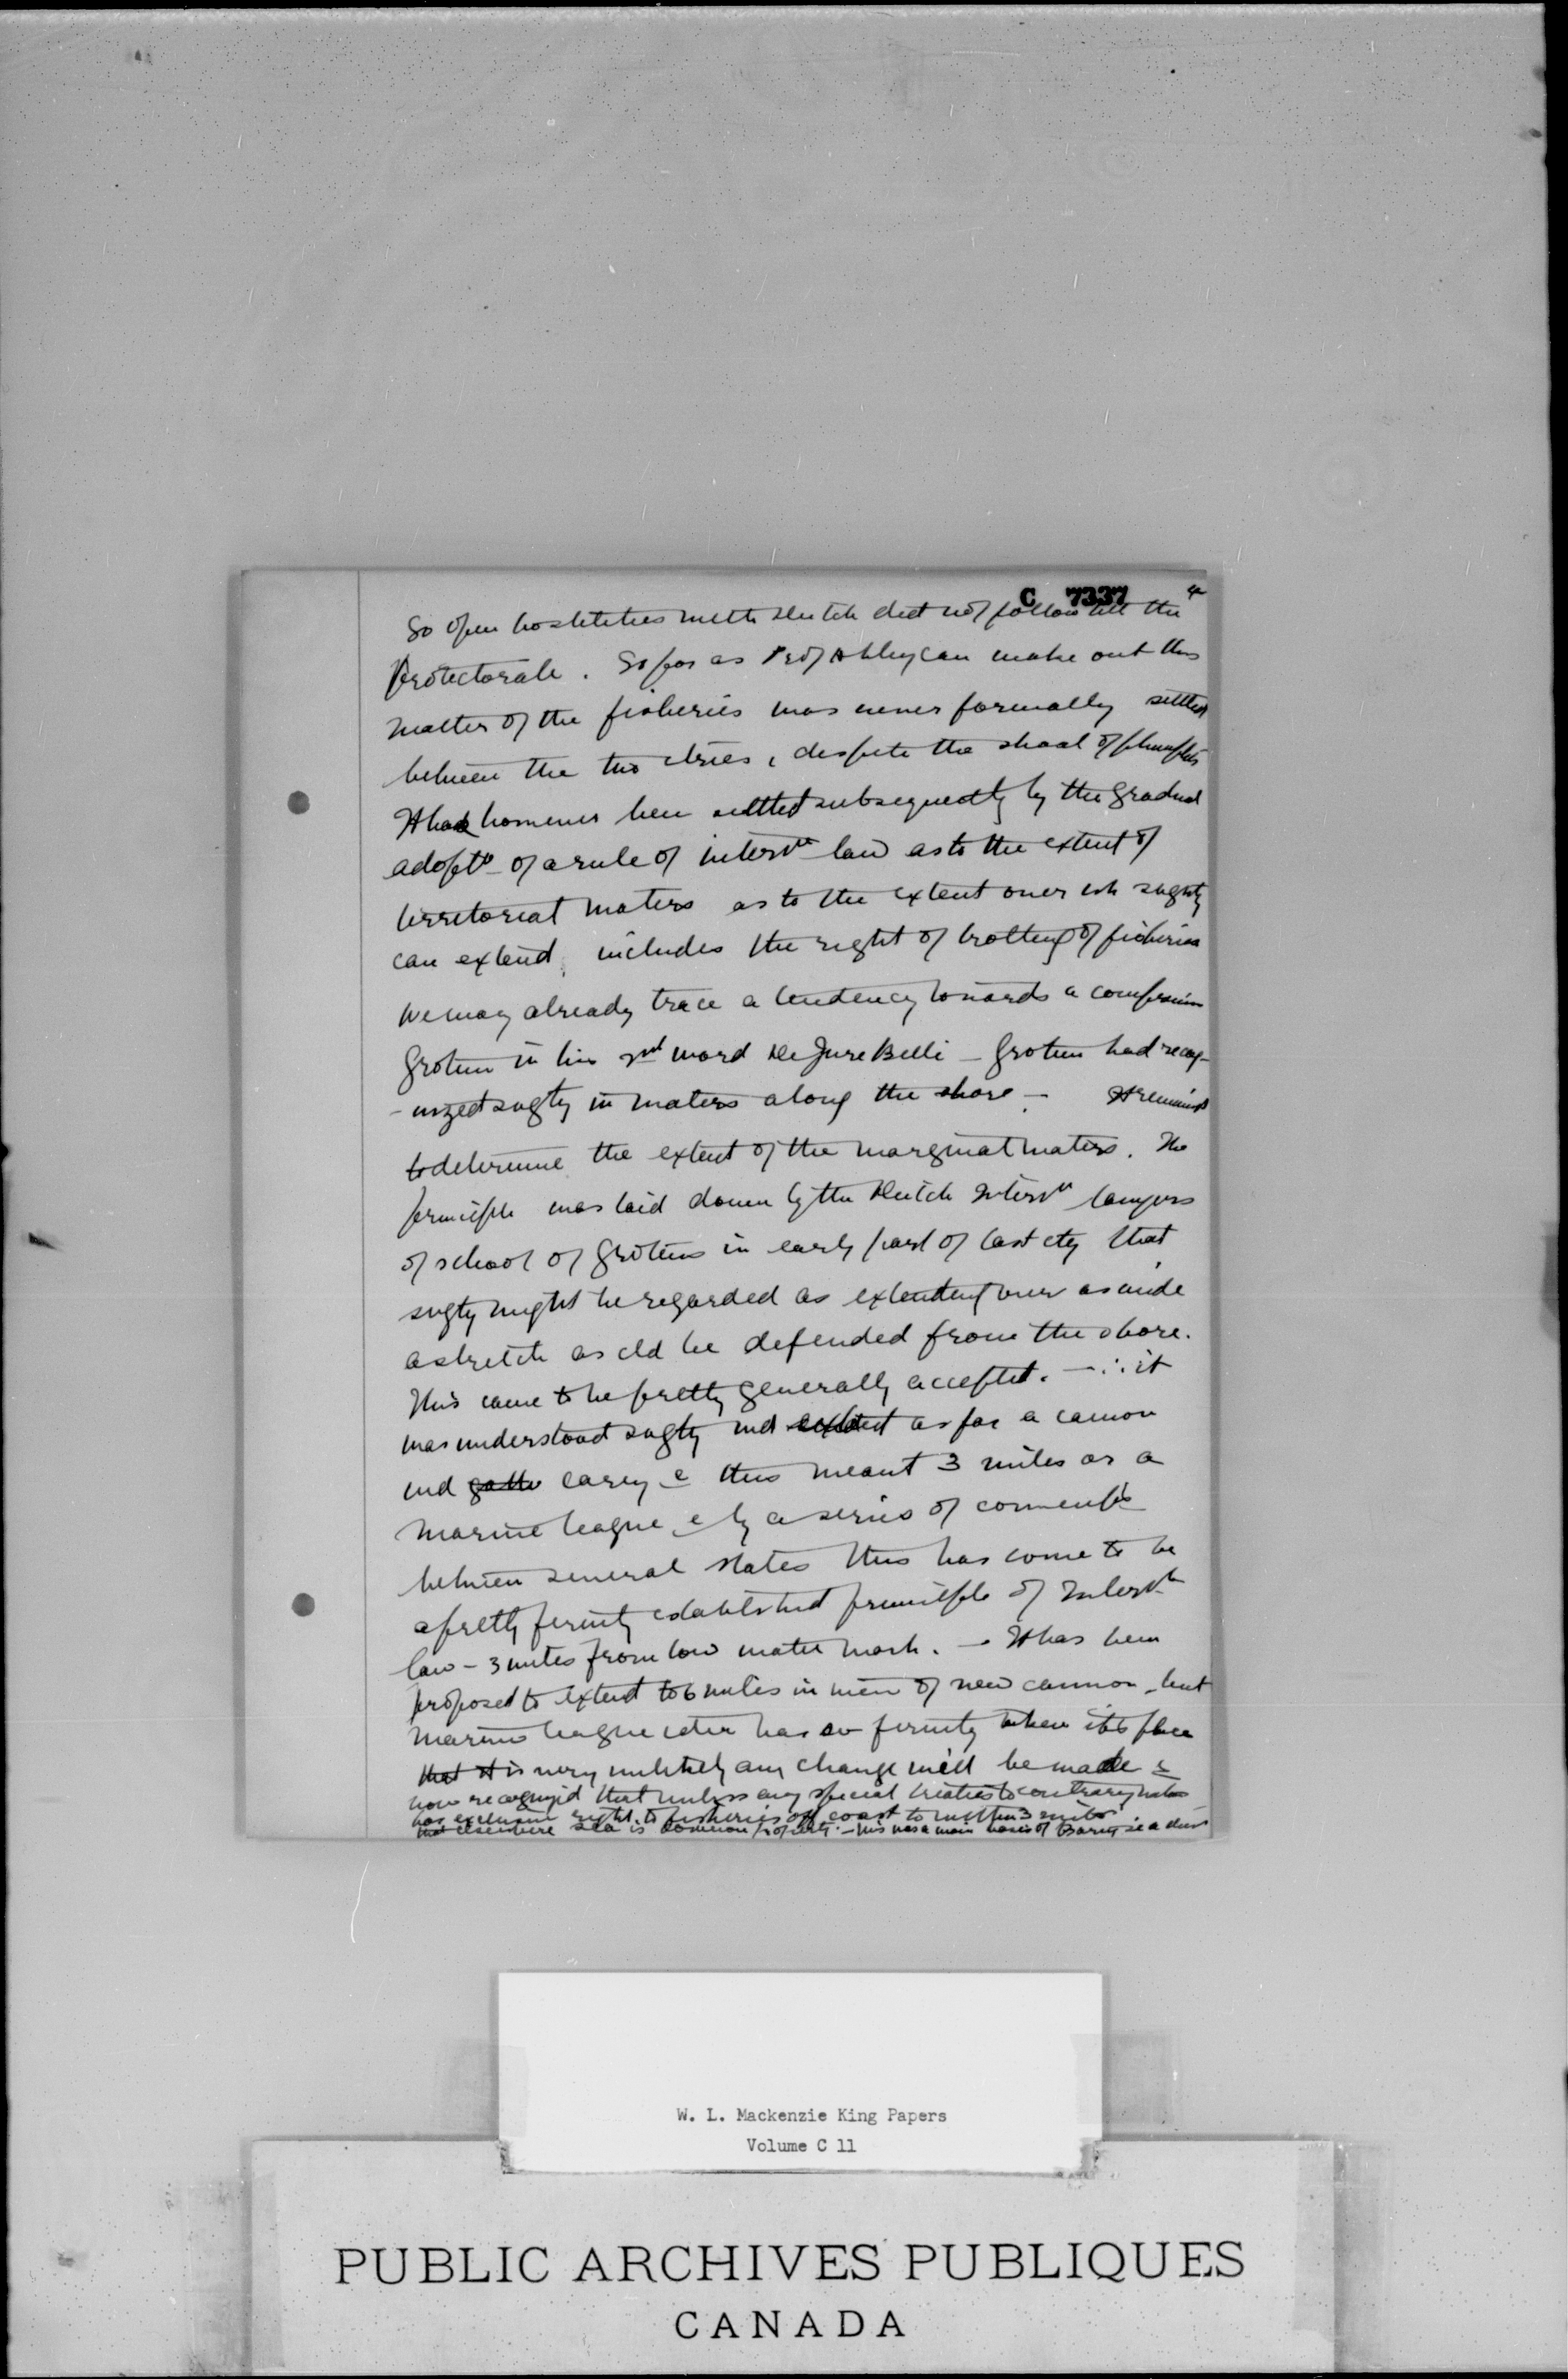 C 7337
4
So open hostilities with Dutch did not follow till the
Protectorate. So far as Prof Ashley can make out this
matter of the fisheries was never formally settled
between the two ctries, despite the shoal of pamphlets
It had however been settled subsequently by the gradual
adoptn of a rule of internl law as to the extent of
territorial waters as to the extent over wh svgty
can extend, includes the right of controllg of fisheries
We may already trace a tendency towards a compromise
Grotius in his 2nd word De Jure Belli - Grotius had recog-
-nized svgty in waters along the shore - It remained
to determine the extent of the marginal waters. The
principle was laid down by the Dutch Internl lawyers
of school of Grotius in early part of last cty that
svgty might be regarded as extending over as wide
a stretch as cld be defended from the shore.
This came to be pretty generally accepted. - ∴ it
was understood svgty wd extend as far a cannon
wd carry & this meant 3 miles or a
marine league & by a series of conventns
between several states this has come to be
a pretty firmly established principle of Internl
law - 3 miles from low water mark. - It has been
proposed to extend to 6 miles in view of new cannon, but
marine league idea has so firmly taken its place
that it is very unlikely any change will be made &
now recognized that unless any special treaties to contrary nation
has exclusive right to fisheries off coast to within 3 miles
that elsewhere sea is common property. - This was a main basis of Baring sea
W. L. Mackenzie King Papers
Volume C 11
PUBLIC ARCHIVES PUBLIQUES
CANADA